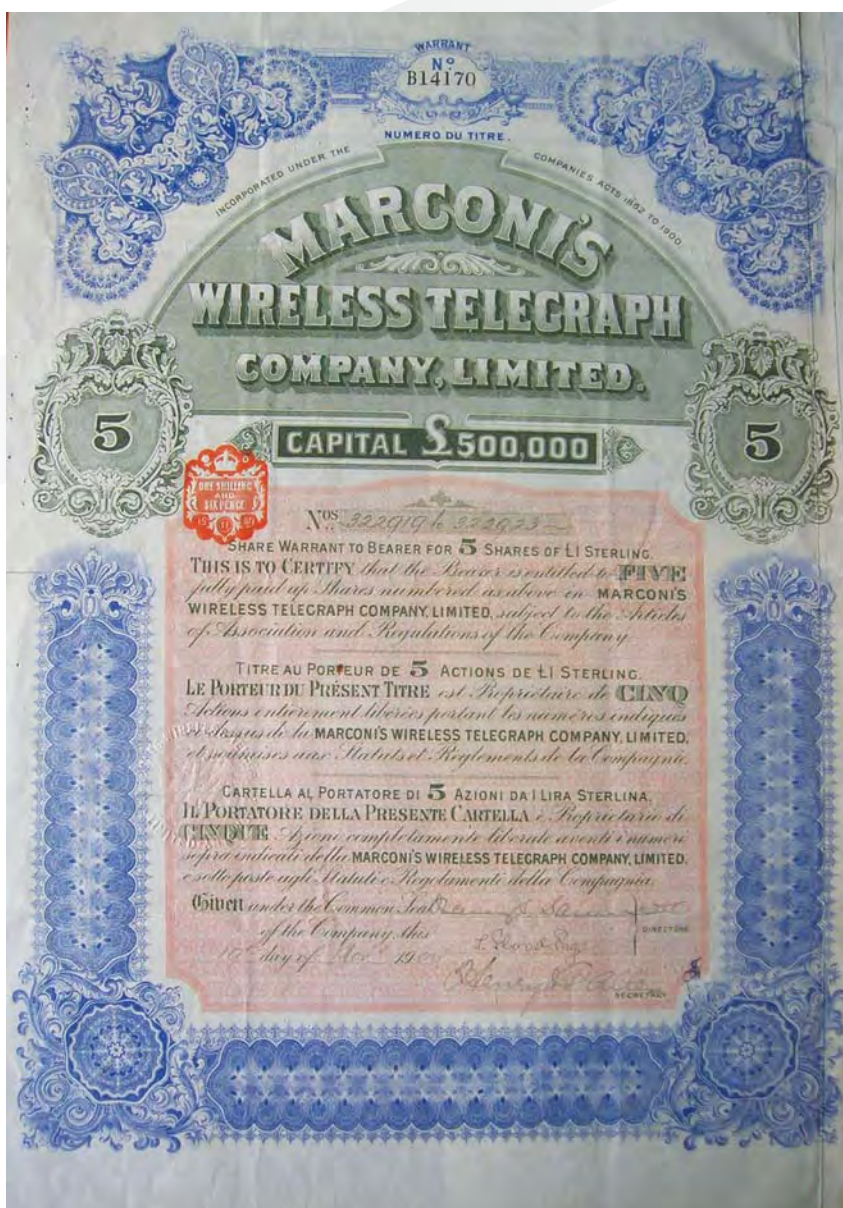 WARRANT
Nº
B14170
NUMERO DU TITRE.
INCORPORATED UNDER THE COMPANIES ACTS 1862 TO 1900
MARCONI'S
WIRELESS TELEGRAPH
COMPANY, LIMITED.
5 5
CAPITAL £500,000
ONE SHILLING
AND
SIX PENCE
Nos 322919 to 322923
SHARE WARRANT TO BEARER FOR 5 SHARES OF £1 STERLING.
THIS IS TO CERTIFY that the Bearer is entitled to FIVE
fully paid up Shares numbered as above in MARCONI'S
WIRELESS TELEGRAPH COMPANY, LIMITED, subject to the Articles
of Association and Regulations of the Company.
TITRE AU PORTEUR DE 5 ACTIONS DE £1 STERLING.
LE PORTEUR DU PRÉSENT TITRE est Propriétaire de CINQ
Actions entièrement libérées portant les numéros indiqués
ci-dessus de la MARCONI'S WIRELESS TELEGRAPH COMPANY, LIMITED,
et soumises aux Statuts et Règlements de la Compagnie.
CARTELLA AL PORTATORE DI 5 AZIONI DA 1 LIRA STERLINA.
IL PORTATORE DELLA PRESENTE CARTELLA è Proprietario di
CINQUE Azioni completamente liberate aventi i numeri
sopra indicati della MARCONI'S WIRELESS TELEGRAPH COMPANY, LIMITED,
e sottoposte agli Statuti e Regolamenti della Compagnia.
Given under the Common Seal
of the Company, this DIRECTORS
day of Nov
SECRETARY